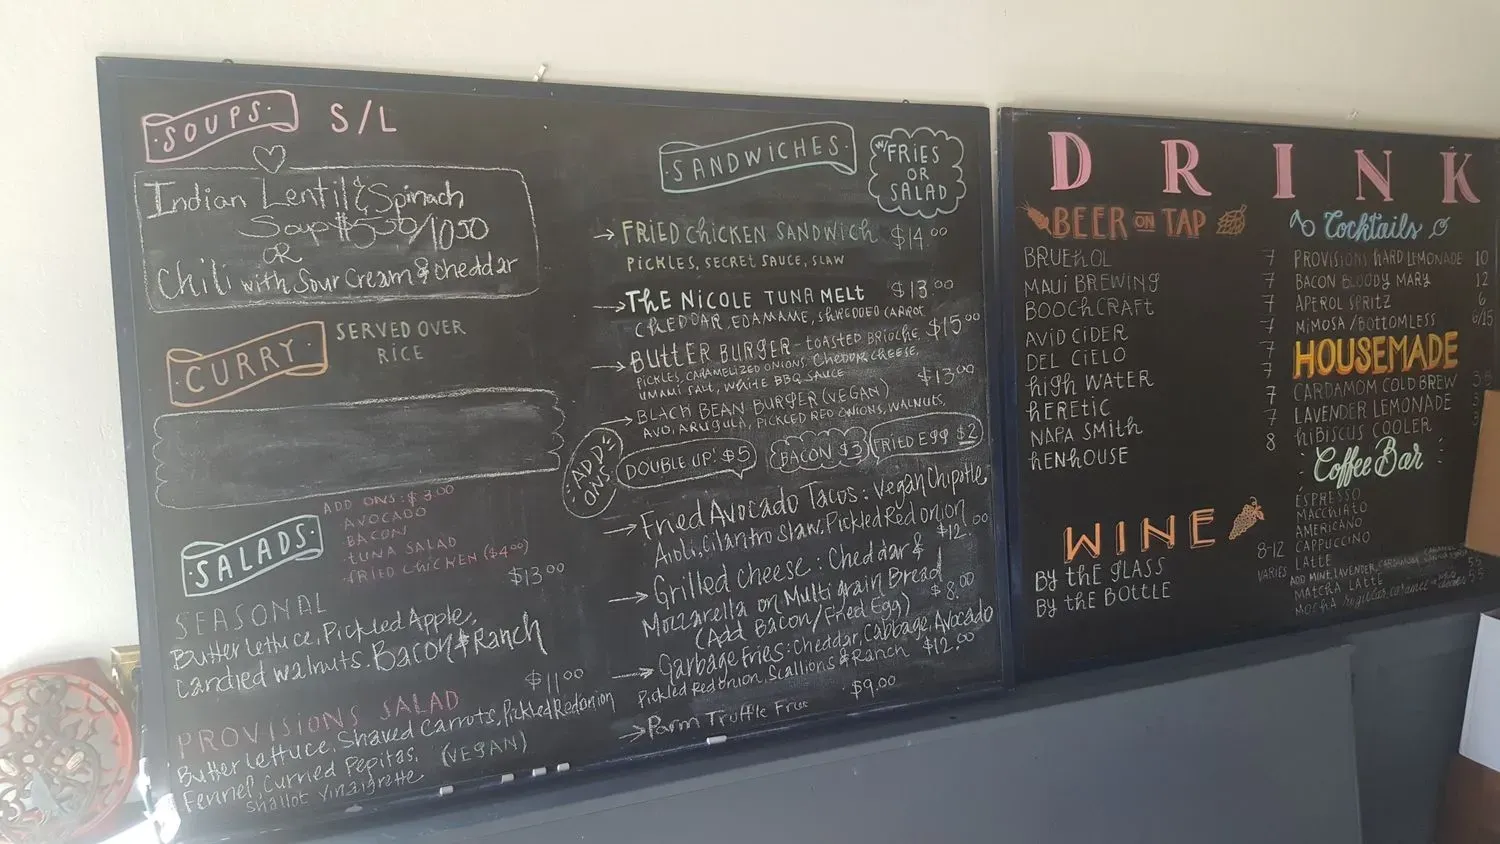 SOUPS S/L
Indian Lentil & Spinach
Soup $5.50/10.50
OR
Chili with Sour Cream & Cheddar
CURRY SERVED OVER
RICE
SALADS
ADD ONS: $3.00
AVOCADO
BACON
TUNA SALAD
FRIED CHICKEN ($4.00)
SEASONAL $13.00
Butter lettuce, Pickled Apple,
Candied walnuts, Bacon & Ranch
PROVISIONS SALAD $11.00
Butter lettuce, Shaved Carrots, Pickled Red onion
Fennel, Curried Pepitas, (VEGAN)
Shallot Vinaigrette
SANDWICHES
W/ FRIES
OR
SALAD
→ FRIED CHICKEN SANDWICH $14.00
PICKLES, SECRET SAUCE, SLAW
→ THE NICOLE TUNA MELT $13.00
CHEDDAR, EDAMAME, SHREDDED CARROT
→ BUTTER BURGER - TOASTED BRIOCHE, $15.00
PICKLES, CARAMELIZED ONIONS, CHEDDAR CHEESE,
UMAMI SALT, WHITE BBQ SAUCE
→ BLACK BEAN BURGER (VEGAN) $13.00
AVO, ARUGULA, PICKLED RED ONIONS, WALNUTS,
ADD ONS
DOUBLE UP! $5
BACON $3
FRIED EGG $2
→ Fried Avocado Tacos: Vegan Chipotle
Aioli, Cilantro Slaw, Pickled Red onion $12.00
→ Grilled cheese: Cheddar &
Mozzarella on Multigrain Bread $8.00
(Add Bacon/Fried Egg)
→ Garbage Fries: Cheddar, Cabbage, Avocado
Pickled Red onion, Scallions & Ranch $12.00
→ Parm Truffle Fries $9.00
DRINK
BEER ON TAP
BRUEHOL 7
MAUI BREWING 7
BOOCHCRAFT 7
AVID CIDER 7
DEL CIELO 7
HIGH WATER 7
HERETIC 7
NAPA SMITH 8
HENHOUSE
WINE
BY THE GLASS 8-12
BY THE BOTTLE VARIES
Cocktails
PROVISIONS HARD LEMONADE 10
BACON BLOODY MARY 12
APEROL SPRITZ 6
MIMOSA/BOTTOMLESS 6/15
HOUSEMADE
CARDAMOM COLD BREW
LAVENDER LEMONADE
HIBISCUS COOLER
Coffee Bar
ESPRESSO
MACCHIATO
AMERICANO
CAPPUCCINO
LATTE
ADD MINT, LAVENDER, CARDAMOM,
MATCHA LATTE
MOCHA